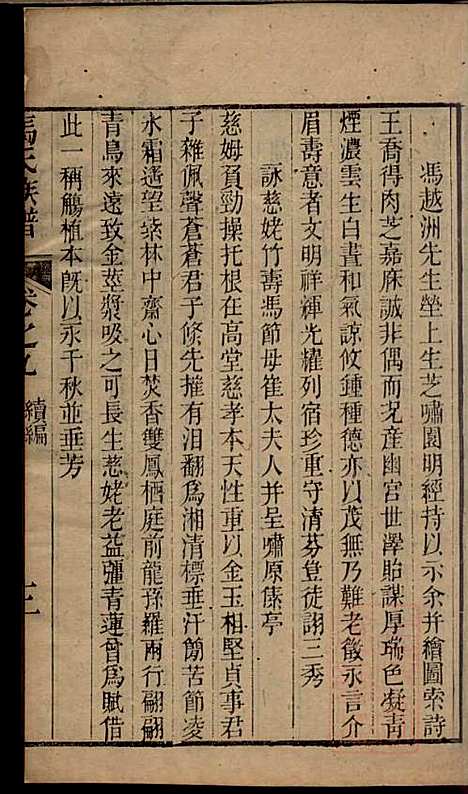 馮越洲先生塋上生芝嘯園明經持以示余并繪圖索詩
王喬得肉芝嘉庥誠非偶而况產幽宮世澤貽謀厚瑞色凝青
煙濃雲生白晝和氣諒攸鍾種德亦以茂無乃難老徵永言介
眉壽意者文明祥輝光耀列宿珍重守清芬豈徒詡三秀
詠慈姥竹壽馮節母崔太夫人并呈嘯原傃亭
慈姆貧勁操托根在高堂慈孝本天性重以金玉相堅貞事君
子雜佩聲蒼蒼君子倐先摧有泪翻爲湘清標垂汗簡苦節凌
氷霜遙望棠林中齋心日焚香雙鳳栖庭前龍孫羅兩行翩翩
青鳥來遠致金莖漿吸之可長生慈姥老益彊青蓮曾爲賦借
此一稱觴植本旣以永千秋並垂芳
馮氏族譜 卷之九 續編